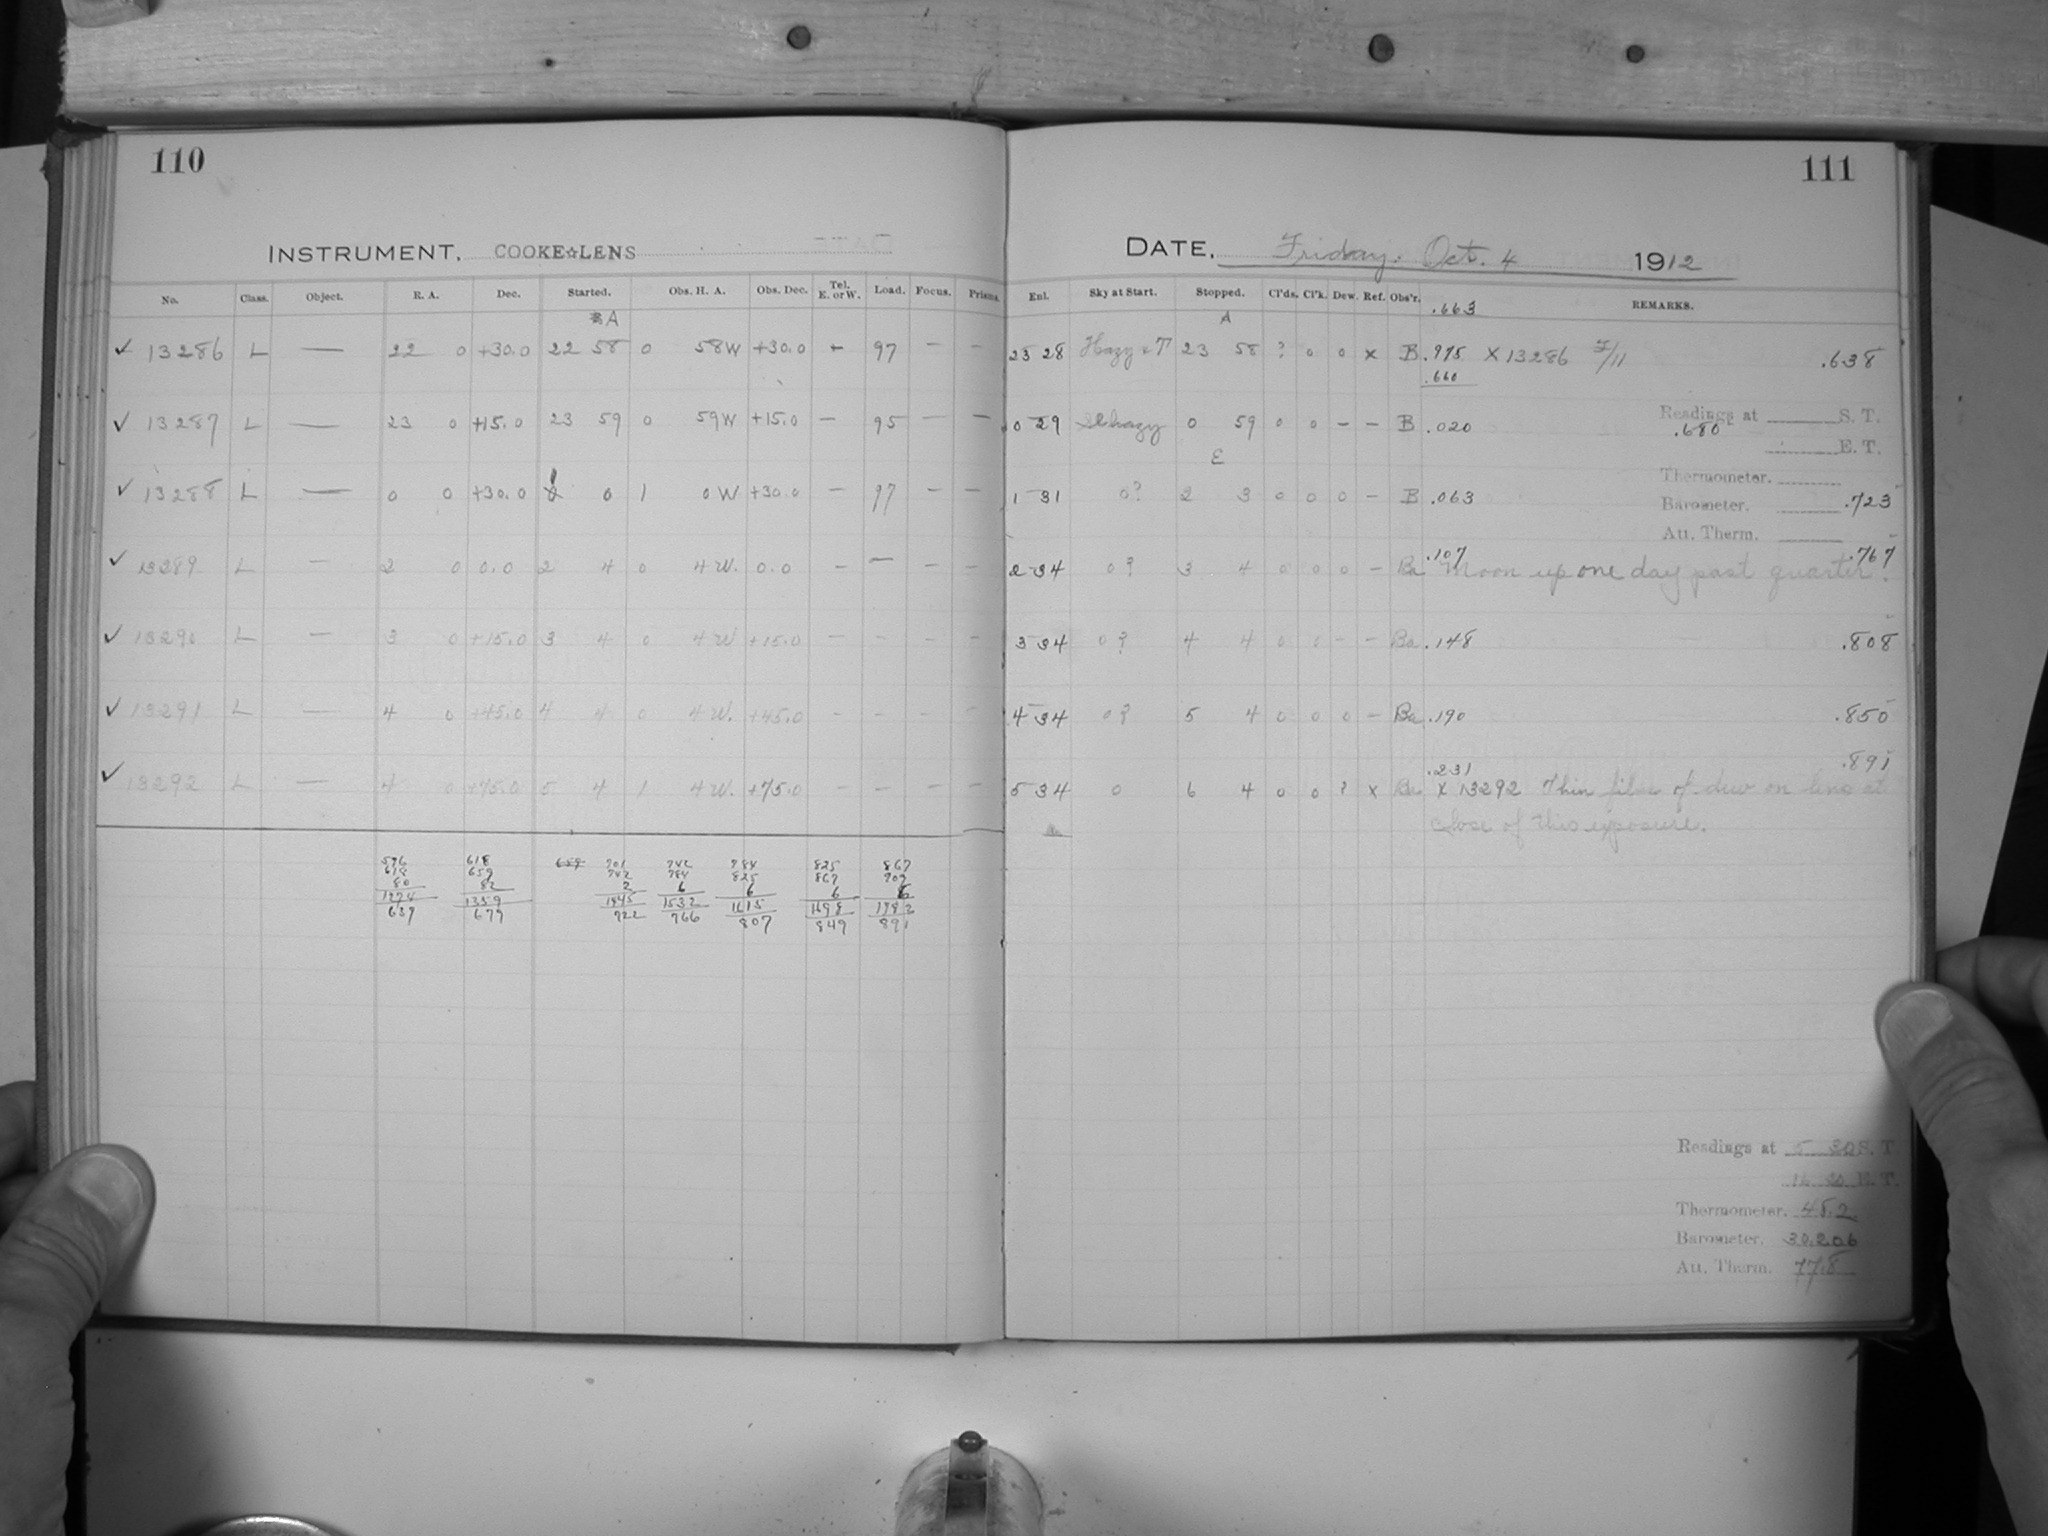 110
INSTRUMENT, COOKE☆LENS
No. Class. Object. R. A. Dec. Started. Obs. H. A. Obs. Dec. Tel. E. or W. Load. Focus. Prisms.
A
✓ 13286 L — 22 0 +30.0 22 58 0 58W +30.0 — 97 — —
✓ 13287 L — 23 0 +15.0 23 59 0 59W +15.0 — 95 — —
✓ 13288 L — 0 0 +30.0 1 0 1 0W +30.0 — 97 — —
✓ 13289 L — 2 0 0.0 2 4 0 4W. 0.0 — — — —
✓ 13290 L — 3 0 +15.0 3 4 0 4W +15.0 — — — —
✓ 13291 L — 4 0 +45.0 4 4 0 4W. +45.0 — — — —
✓ 13292 L — 4 0 +75.0 5 4 1 4W. +75.0 — — — —
576 618 659 701 742 784 825 867
618 659 742 784 825 867 909
80 82 2 6 6 6 6
1274 1359 1445 1532 1615 1698 1782
637 679 722 766 807 849 891
111
DATE, Friday. Oct. 4 1912
Enl. Sky at Start. Stopped. Cl'ds. Cl'k. Dew. Ref. Obs'r. REMARKS.
.663
A
23 28 Hazy & T 23 58 ? 0 0 x B .975 X 13286 F/11 .638
.660
0 29 hazy 0 59 0 0 — — B .020
Readings at S. T.
.680
E. T.
E
Thermometer.
1 31 0? 2 3 0 0 0 — B .063
Barometer. .723
Att. Therm.
.107 .767
2 34 0? 3 4 0 0 0 — Ba Moon up one day past quarter.
3 34 0? 4 4 0 0 — — Ba .148 .808
4 34 0? 5 4 0 0 0 — Ba .190 .850
.231 .891
5 34 0 6 4 0 0 ? x Ba X 13292 Thin film of dew on lens at
close of this exposure.
Readings at 5 30 S. T.
16 20 E. T.
Thermometer. 48.2
Barometer. 30.206
Att. Therm. 77.8